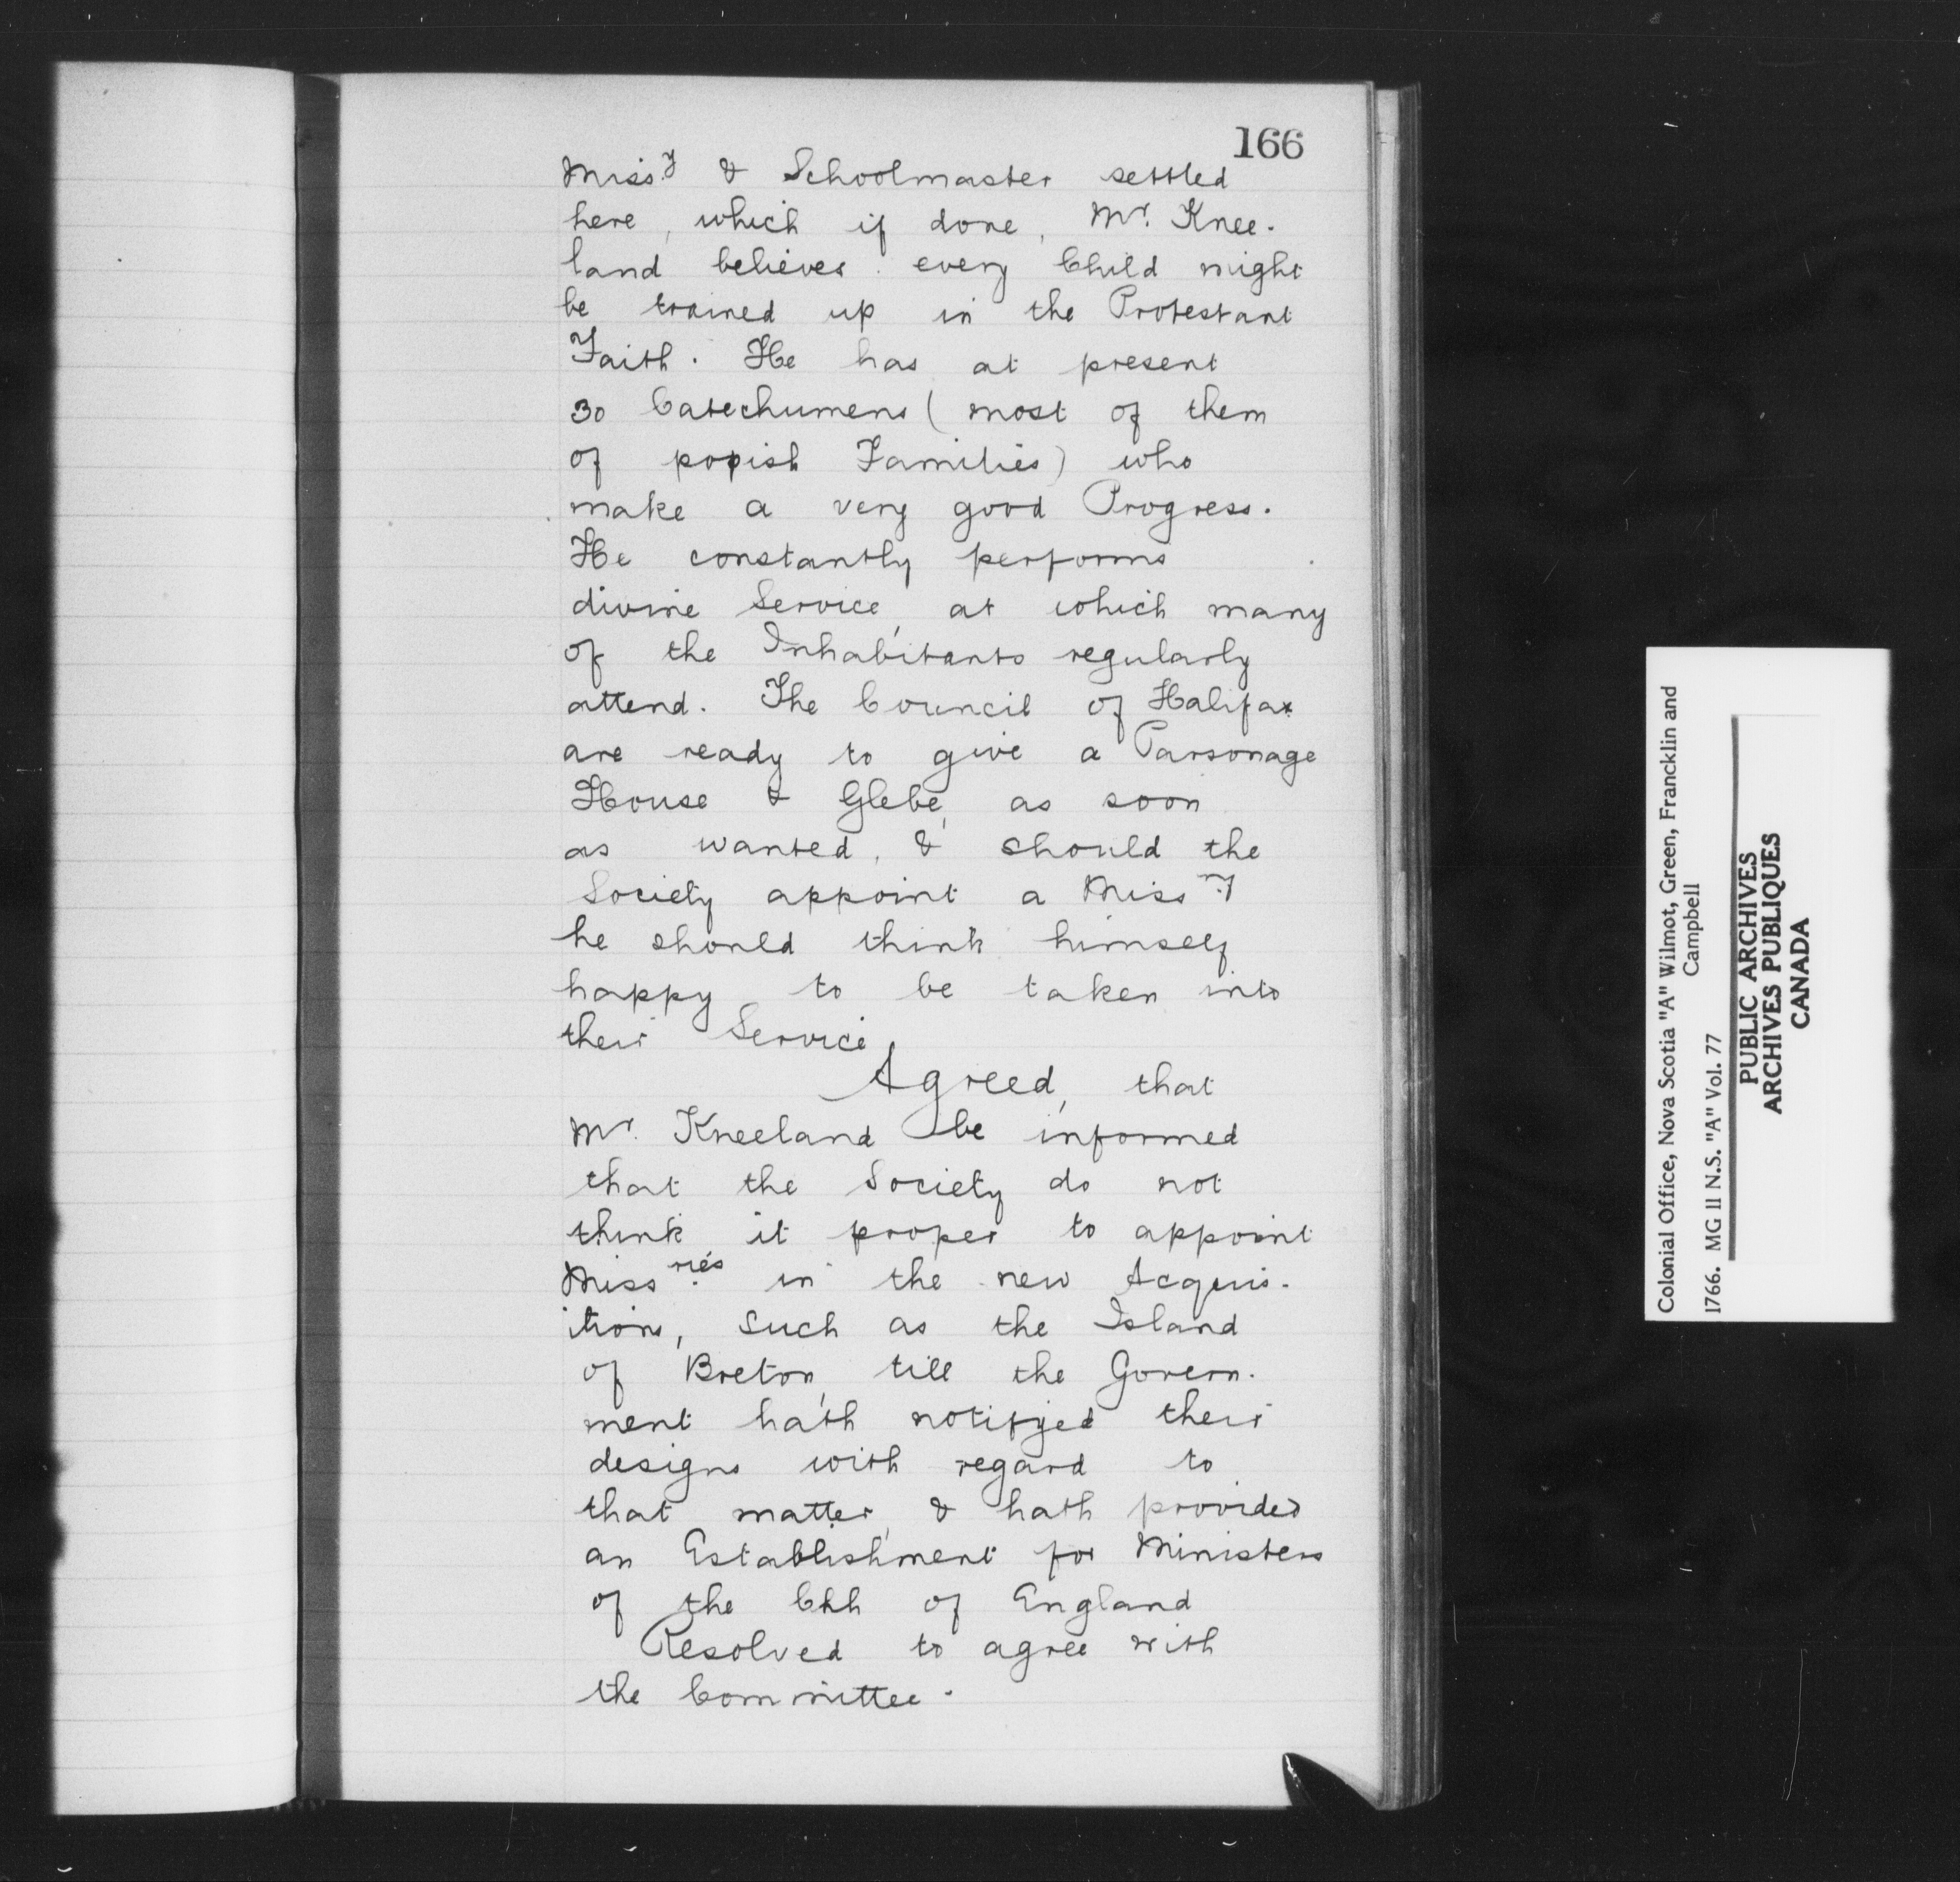 166
Miss.y & Schoolmaster settled
here, which if done, Mr. Knee-
land believes every Child might
be trained up in the Protestant
Faith. He has at present
30 Catechumens (most of them
of popish Families) who
make a very good Progress.
He constantly performs
divine Service, at which many
of the Inhabitants regularly
attend. The Council of Halifax
are ready to give a Parsonage
House & Glebe, as soon
as wanted, & should the
Society appoint a Missry
he should think himself
happy to be taken into
their Service.
Agreed, that
Mr. Kneeland be informed
that the Society do not
think it proper to appoint
Missries in the new Acquis-
itions, such as the Island
of Breton, till the Govern-
ment hath notifyed their
designs with regard to
that matter, & hath provided
an Establishment for Ministers
of the Chh of England
Resolved to agree with
the Committee.
Colonial Office, Nova Scotia "A" Wilmot, Green, Francklin and
Campbell
1766. MG 11 N.S. "A" Vol. 77
PUBLIC ARCHIVES
ARCHIVES PUBLIQUES
CANADA